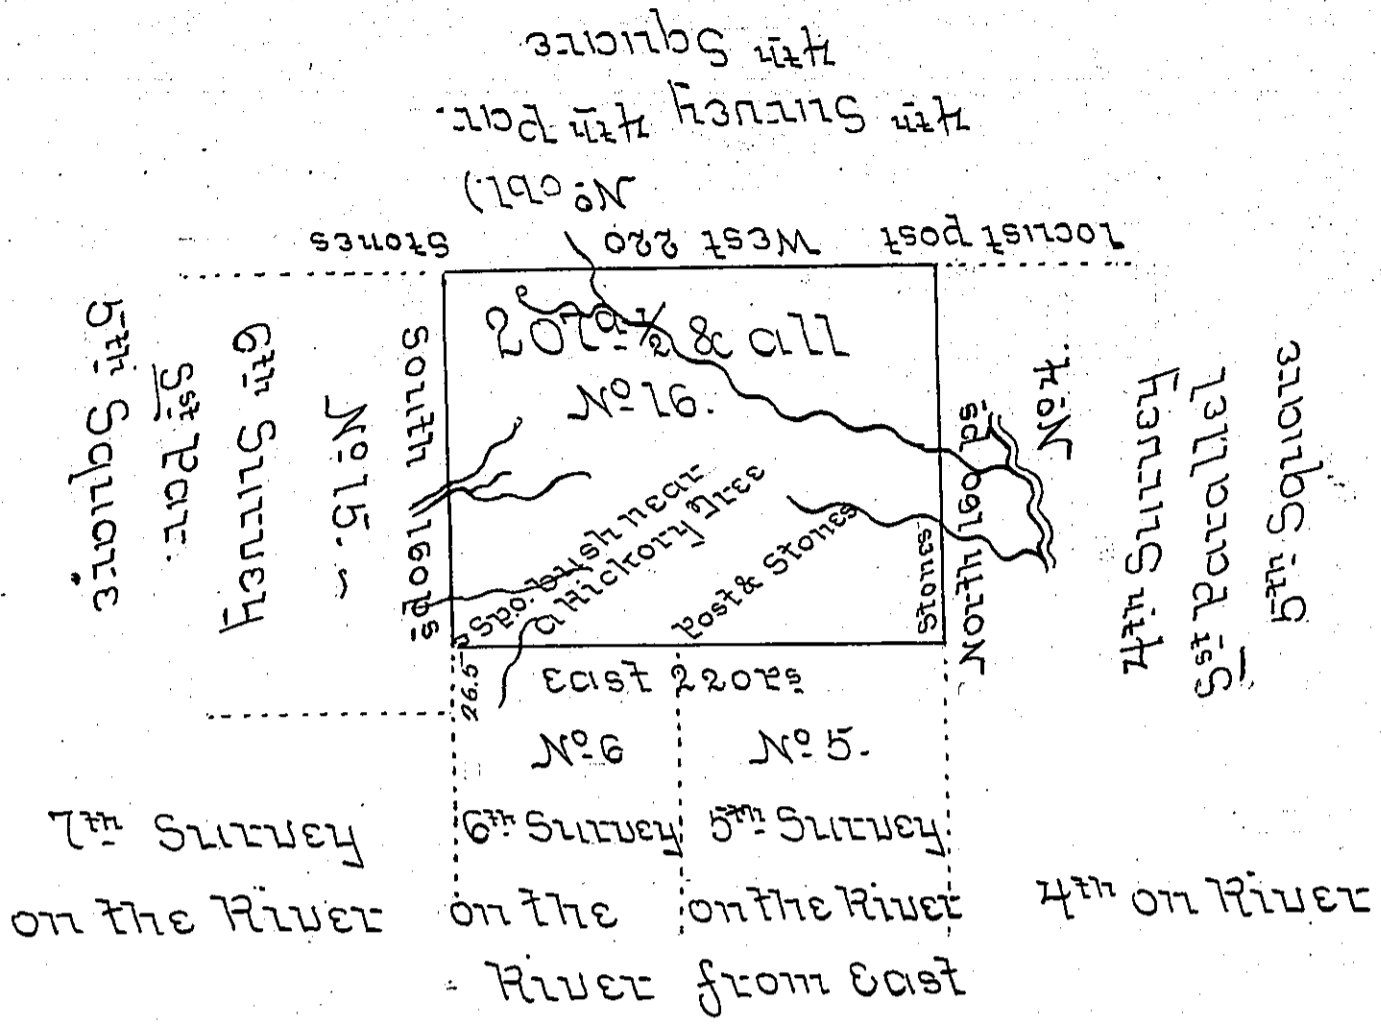 4th Square
4th Survey 4th Par.
(No: obl.)
Stones
West 220
Locust post
5th Square
Sst Par.
6th Survey
No 15. ~
South 160 ps
207a 1/2 & all
No 16.
Spo. bush near
a Hickory Tree
Post & Stones
Stones
North 160 ps
No 4.
4th Survey
Sst Par
5th Square
26.5
East 220 ps
No 6
No 5.
7th Survey
on the River
6th Survey
on the
River from East
5th Survey
on the River
4th on River